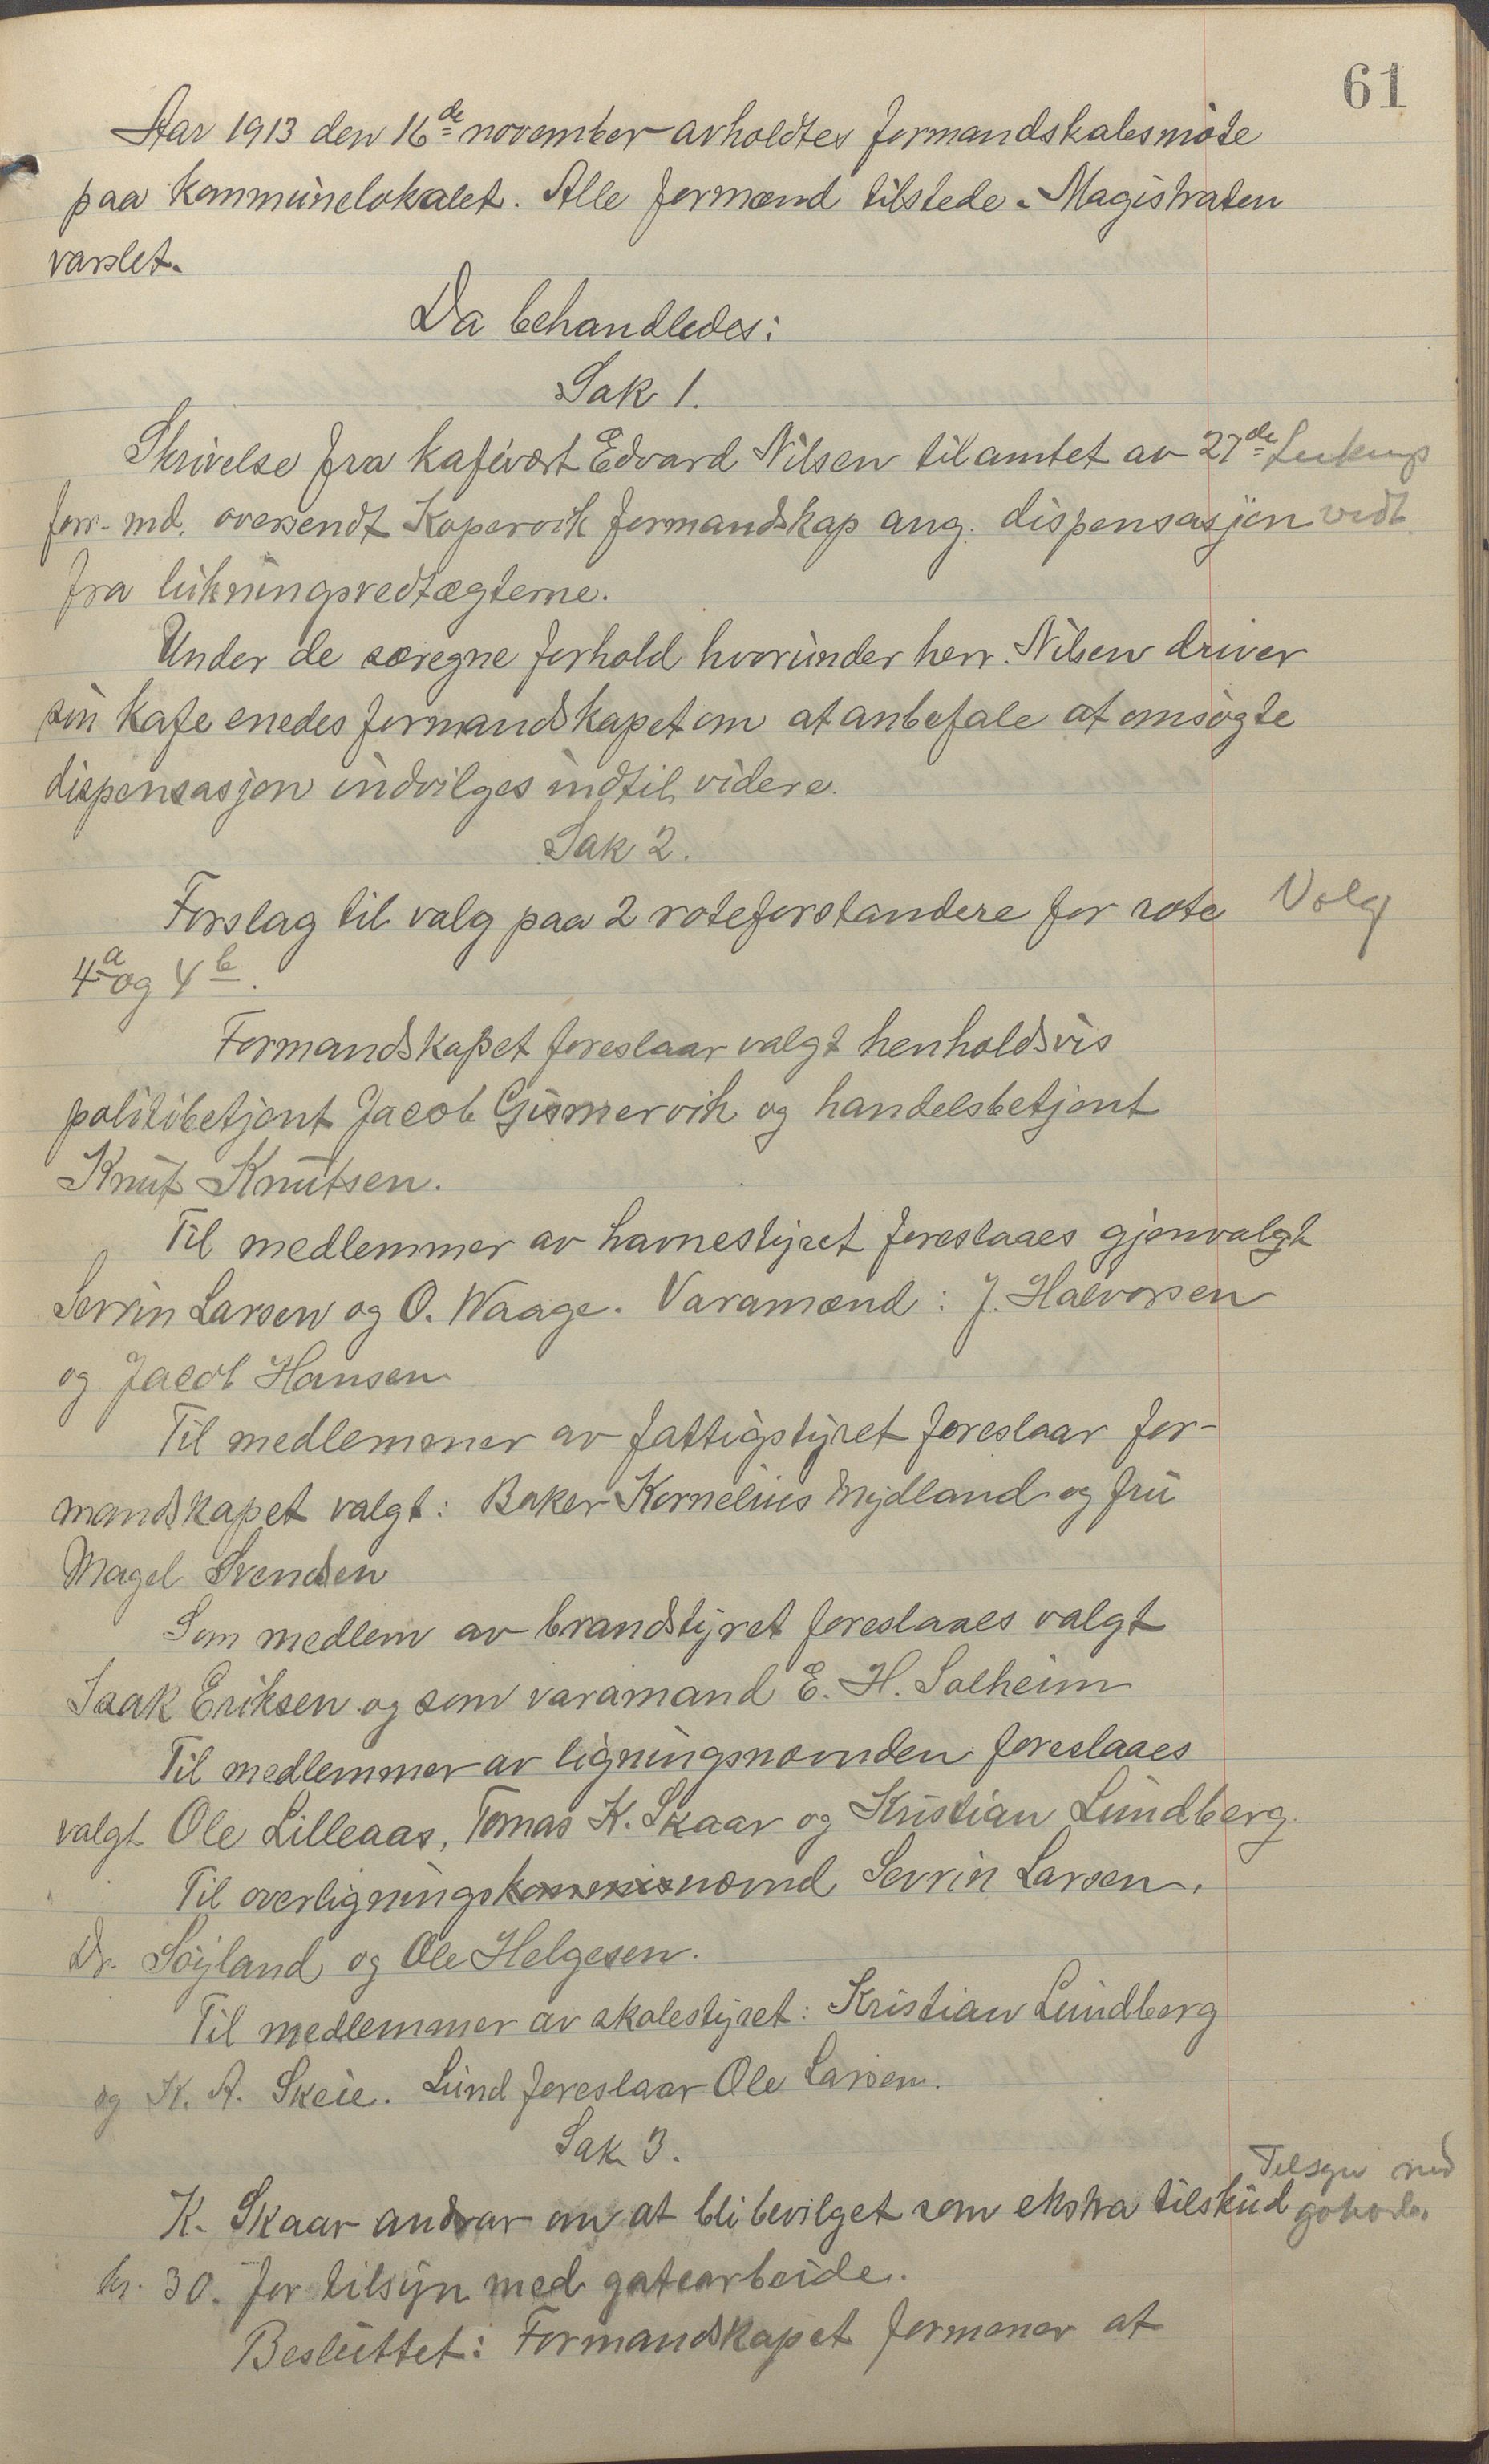 61
Aar 1913 den 16de november avholdtes formandskabsmøte
paa kommunelokalet. Alle formænd tilstede. Magistraten
varslet.
Da behandledes:
Sak 1.
Skrivelse fra kafévært Edvard Nilsen til amtet av 27de Lukngs
forr. md. oversendt Kopervik formandskap ang. dispensasjon vedt
fra lukningsvedtægterne.
Under de særegne forhold hvorunder herr. Nilsen driver
sin kafe enedes formandskapet om at anbefale at omsøgte
dispensasjon indvilges indtil videre.
Sak 2.
Forslag til valg paa 2 roteforstandere for rote Valg
4a og 4b.
Formandskapet foreslaar valgt henholdsvis
politibetjent Jacob Gismervik og handelsbetjent
Knut Knutsen.
Til medlemmer av havnestyret foreslaaes gjenvalgt
Sevrin Larsen og O. Waage. Varamænd: J. Halvorsen
og Jacob Hansen
Til medlemmer av fattigstyret foreslaar for-
mandskapet valgt: Baker Kornelius Mydland og fru
Magel Svendsen
Som medlem av brandstyret foreslaaes valgt
Isak Eriksen og som varamand E. H. Solheim
Til medlemmer av ligningsnævnden foreslaaes
valgt Ole Lilleaas, Tomas K. Skaar og Kristian Lundberg.
Til overligningskommisnævnd Sevrin Larsen,
Dr. Søyland og Ole Helgesen.
Til medlemmer av skolestyret: Kristian Lundberg
og K. A. Skeie. Lund foreslaar Ole Larsen.
Sak 3.
Tilsyn med
K. Skaar andrar om at bli bevilget som ekstra tilskud
kr. 30. for tilsyn med gatearbeide.
Besluttet: Formandskapet formener at